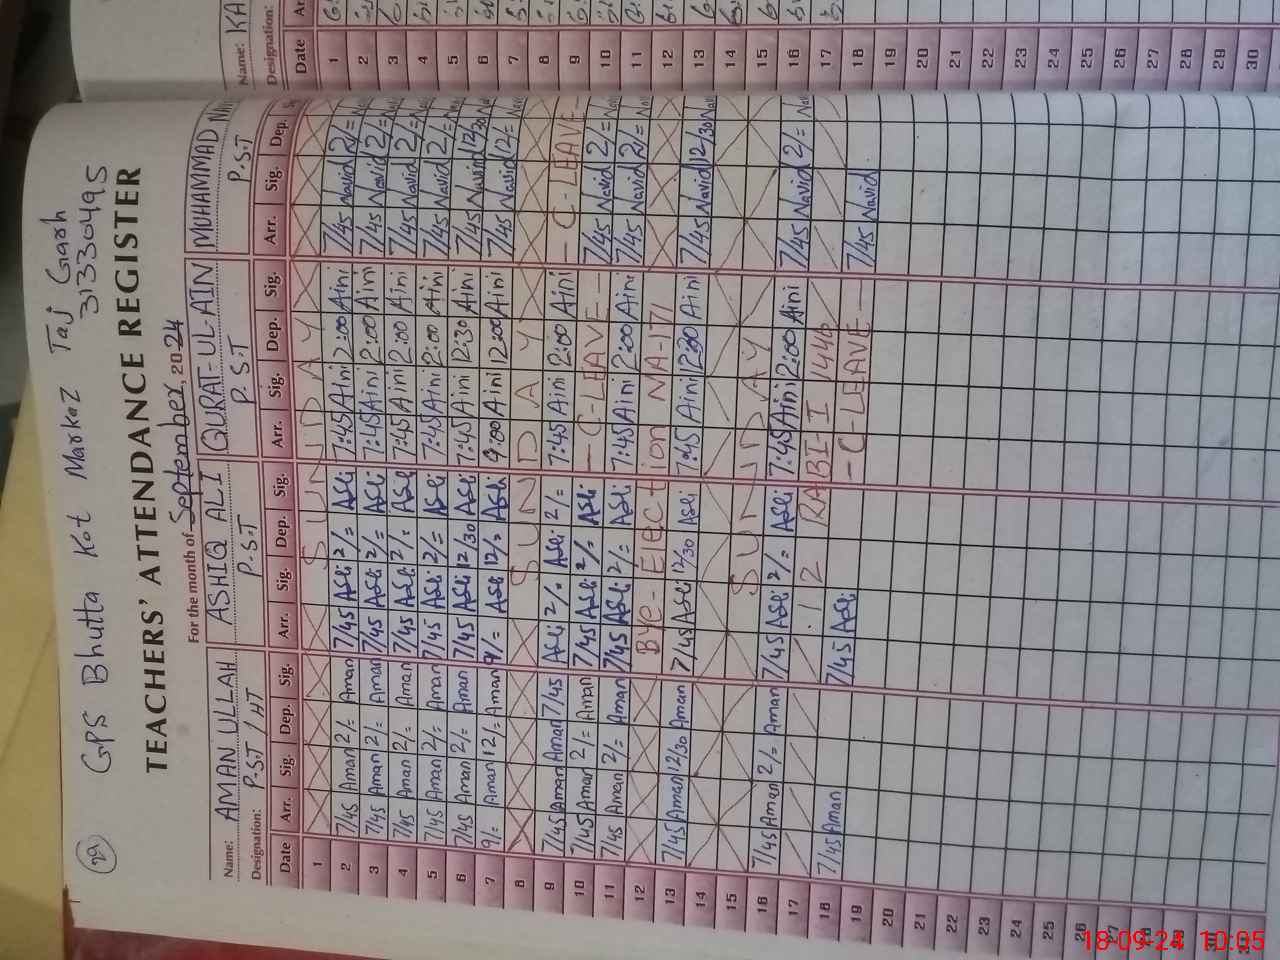 29
GPS Bhutta Kot Markaz Taj Garh
31330495
TEACHERS' ATTENDANCE REGISTER
For the month of September, 2024
Name: AMAN ULLAH ASHIQ ALI QURAT-UL-AIN MUHAMMAD
Designation: P.S.T / HT P.S.T P.S.T P.S.T
Date Arr. Sig. Dep. Sig. Arr. Sig. Dep. Sig. Arr. Sig. Dep. Sig. Arr. Sig. Dep.
1 SUNDAY
2 7/45 Aman 2/= Aman 7/45 ASli 2/= ASli 7:45 Aini 2:00 Aini 7/45 Navid 2/=
3 7/45 Aman 2/= Aman 7/45 ASli 2/= ASli 7:45 Aini 2:00 Aini 7/45 Navid 2/=
4 7/45 Aman 2/= Aman 7/45 ASli 2/= ASli 7:45 Aini 2:00 Aini 7/45 Navid 2/=
5 7/45 Aman 2/= Aman 7/45 ASli 2/= ASli 7:45 Aini 2:00 Aini 7/45 Navid 2/=
6 7/45 Aman 2/= Aman 7/45 ASli 12/30 ASli 7:45 Aini 12:30 Aini 7/45 Navid 12/30
7 9/= Aman 12/= Aman 9/= ASli 12/= ASli 9:00 Aini 12:00 Aini 7/45 Navid 12/=
8 SUNDAY
9 7/45 Aman Aman 7/45 ASli 2/= ASli 2/= 7:45 Aini 2:00 Aini - C-LEAVE -
10 7/45 Aman 2/= Aman 7/45 ASli 2/= ASli - C-LEAVE - 7/45 Navid 2/=
11 7/45 Aman 2/= Aman 7/45 ASli 2/= ASli 7:45 Aini 2:00 Aini 7/45 Navid 2/=
12 Bye-Election NA-171
13 7/45 Aman 12/30 Aman 7/45 ASli 12/30 ASli 7:45 Aini 12:30 Aini 7/45 Navid 12/30
14
15 SUNDAY
16 7/45 Aman 2/= Aman 7/45 ASli 2/= ASli 7:45 Aini 2:00 Aini 7/45 Navid 2/=
17 12 RABI-I 1446
18 7/45 Aman 7/45 ASli - C-LEAVE - 7/45 Navid
19
20
21
22
23
24
25
26
27
28
29
30
31
Name: KA
Designation:
Date
1
2
3
4
5
6
7
8
9
10
11
12
13
14
15
16
17
18
19
20
21
22
23
24
25
26
27
28
29
30
18-09-24 10:05